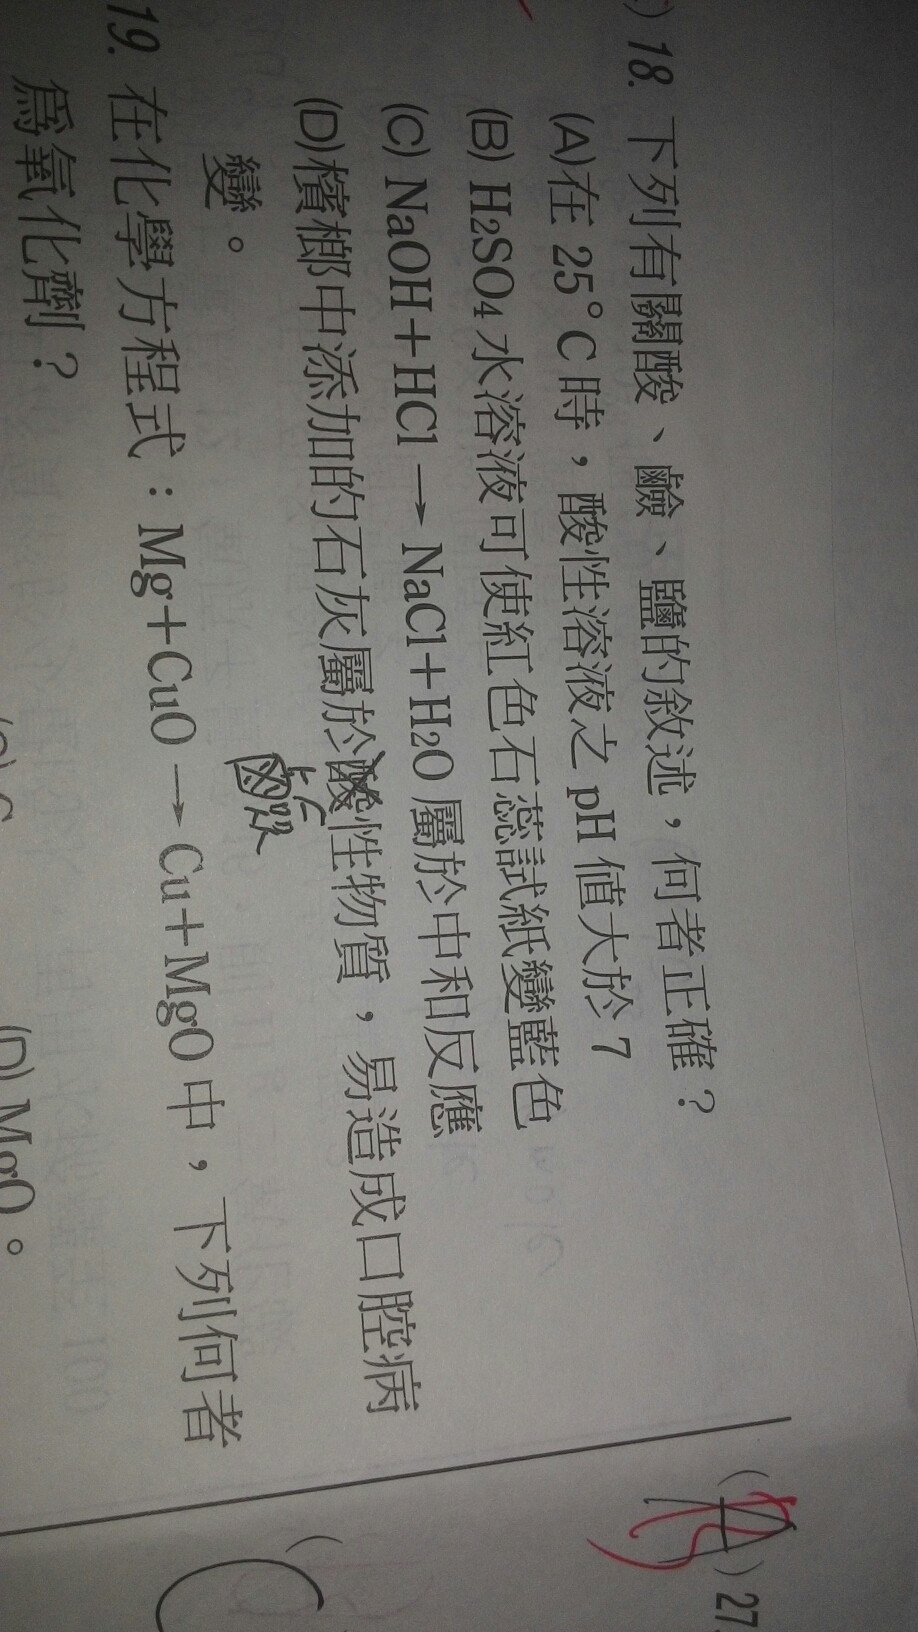 ) 18. 下列有關酸、鹼、鹽的敘述，何者正確？
(A)在 25°C 時，酸性溶液之 pH 值大於 7
(B) H2SO4 水溶液可使紅色石蕊試紙變藍色
(C) NaOH＋HCl → NaCl＋H2O 屬於中和反應
(D)檳榔中添加的石灰屬於酸性物質，易造成口腔病
鹼
變。
19. 在化學方程式：Mg＋CuO → Cu＋MgO 中，下列何者
為氧化劑？
(D) MgO。
(A) 27.
(